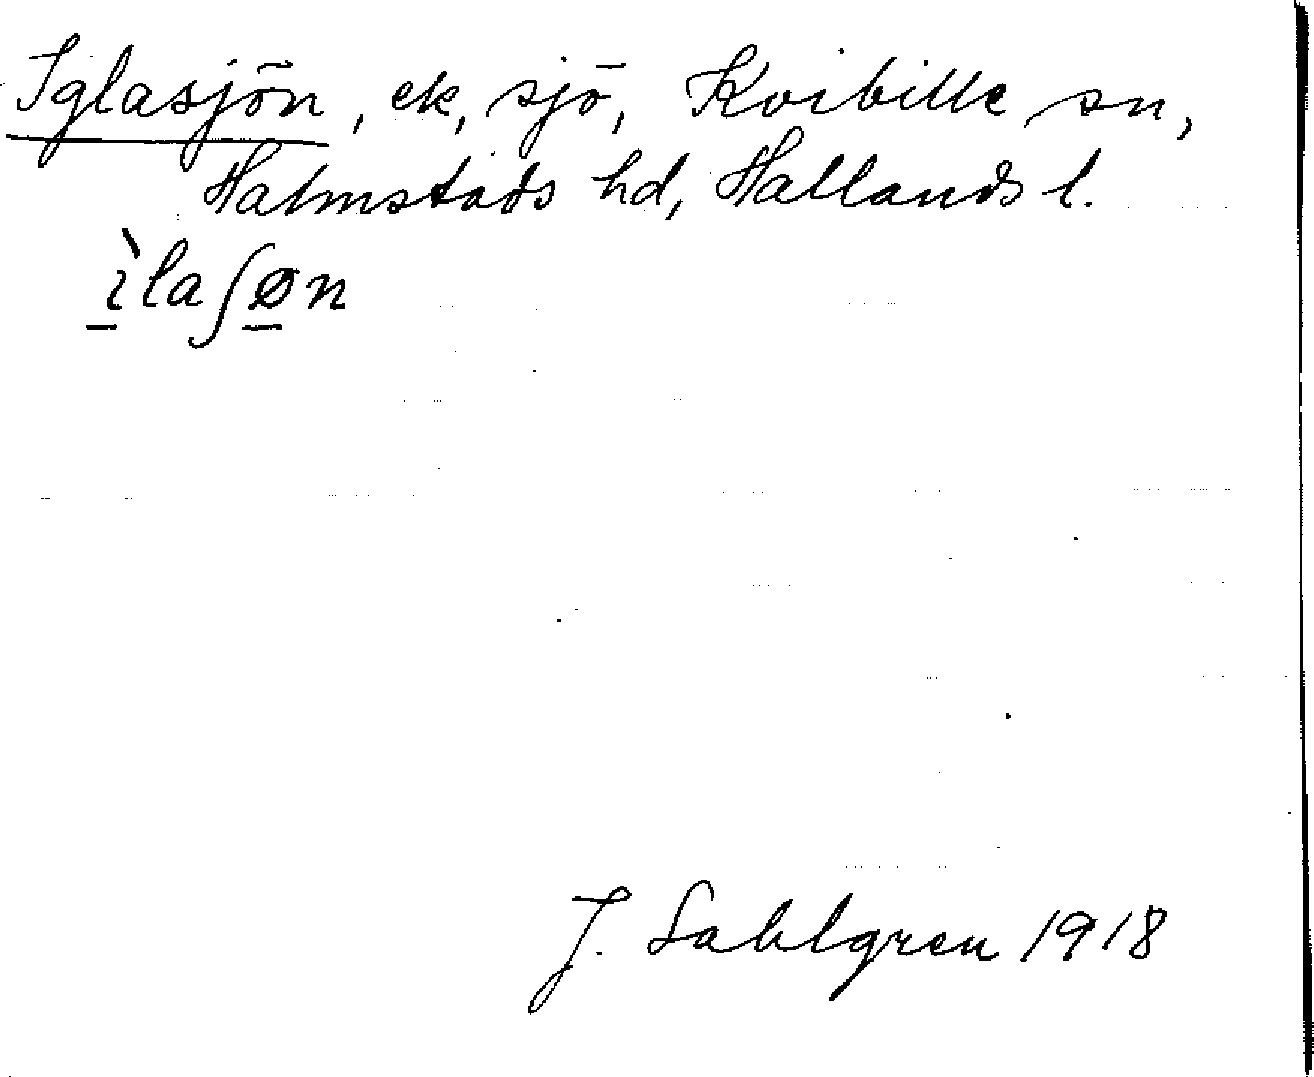 Iglasjön, ek, sjö, Kvibille sn,
Halmstads hd, Hallands l.
ìlaʃøn
J. Sahlgren 1918